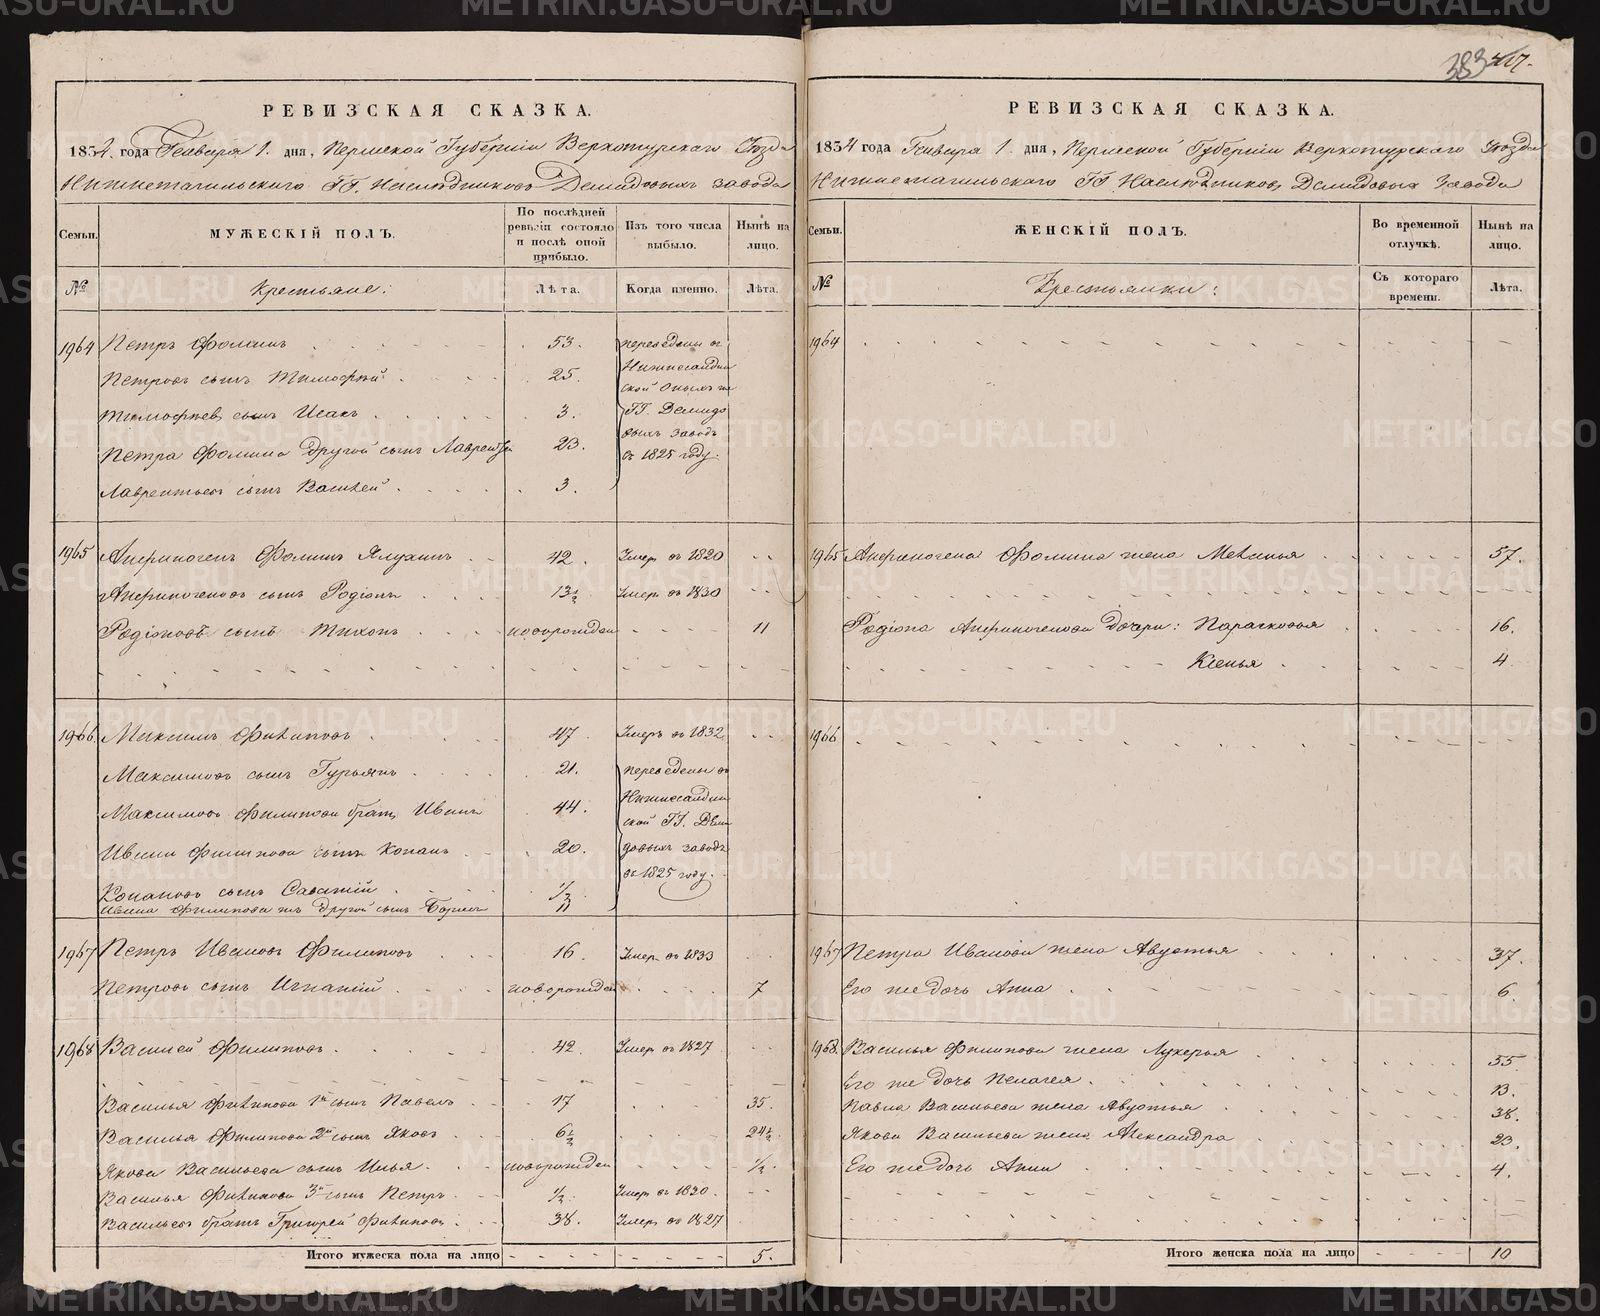 РЕВИЗСКАЯ СКАЗКА.
1834 года Генваря 1. дня, Пермской Губерніи Верхотурскаго Уезда
Нижнетагильскаго ГГ. Наследниковъ Демидовыхъ завода
Семьи.
МУЖЕСКІЙ ПОЛЪ.
По послѣдней ревизіи состояло и послѣ оной прибыло.
Изъ того числа выбыло.
Нынѣ на лицо.
№
Крестьяне:
Лѣта.
Когда именно.
Лѣта.
1964 Петръ Фоминъ 53. переведены въ
Петровъ сынъ Тимофей 25. Нижнесалдин
ской оныхъ же
Тимофеевъ сынъ Исакъ 3. ГГ. Демидо
Петра Фомина другой сынъ Лаврентей 23. выхъ заводъ
въ 1825 году.
Лаврентьевъ сынъ Василей 3.
1965 Анфиногенъ Фоминъ Ялунинъ 42. Умеръ въ 1820
Анфиногеновъ сынъ Родіонъ 13½ Умеръ въ 1830
Родіоновъ сынъ Тихонъ новорожден 11
1966 Максимъ Филиповъ 47. Умеръ въ 1832
Максимовъ сынъ Гурьянъ 21. переведены въ
Нижнесалдин
Максимовъ Филипова братъ Иванъ 44. ской ГГ. Деми
Ивана Филипова сынъ Конанъ 20. довыхъ заводъ
въ 1825 году.
Конановъ сынъ Саватий ½
Ивана Филипова же другой сынъ Борисъ 11
1967 Петръ Ивановъ Филиповъ 16. Умеръ въ 1833
Петровъ сынъ Игнатій новорожден 7
1968 Василей Филиповъ 42. Умеръ въ 1827
Василья Филипова 1й сынъ Павелъ 17 35.
Василья Филипова 2й сынъ Яковъ 6½ 24½
Якова Васильева сынъ Илья новорожден ½
Василья Филипова 3й сынъ Петръ ½ Умеръ въ 1820.
Васильевъ братъ Григорей Филиповъ 38. Умеръ въ 1827
Итого мужеска пола на лицо 5.
383
РЕВИЗСКАЯ СКАЗКА.
1834 года Генваря 1. дня, Пермской Губерніи Верхотурскаго Уезда
Нижнетагильскаго ГГ. Наследниковъ Демидовыхъ Завода
Семьи.
ЖЕНСКІЙ ПОЛЪ.
Во временной отлучкѣ.
Нынѣ на лицо.
№
Крестьянки:
Съ котораго времени.
Лѣта.
1964
1965 Анфиногена Фомина жена Меланья 57.
Родіона Анфиногенова дочери: Парасковья 16.
Ксенья 4
1966
1967 Петра Иванова жена Авдотья 37.
Его же дочь Анна 6.
1968. Василья Филипова жена Лукерья 55
Его же дочь Пелагея 13.
Павла Васильева жена Авдотья 38.
Якова Васильева жена Александра 23.
Его же дочь Анна 4.
Итого женска пола на лицо 10
METRIKI.GASO-URAL.RU